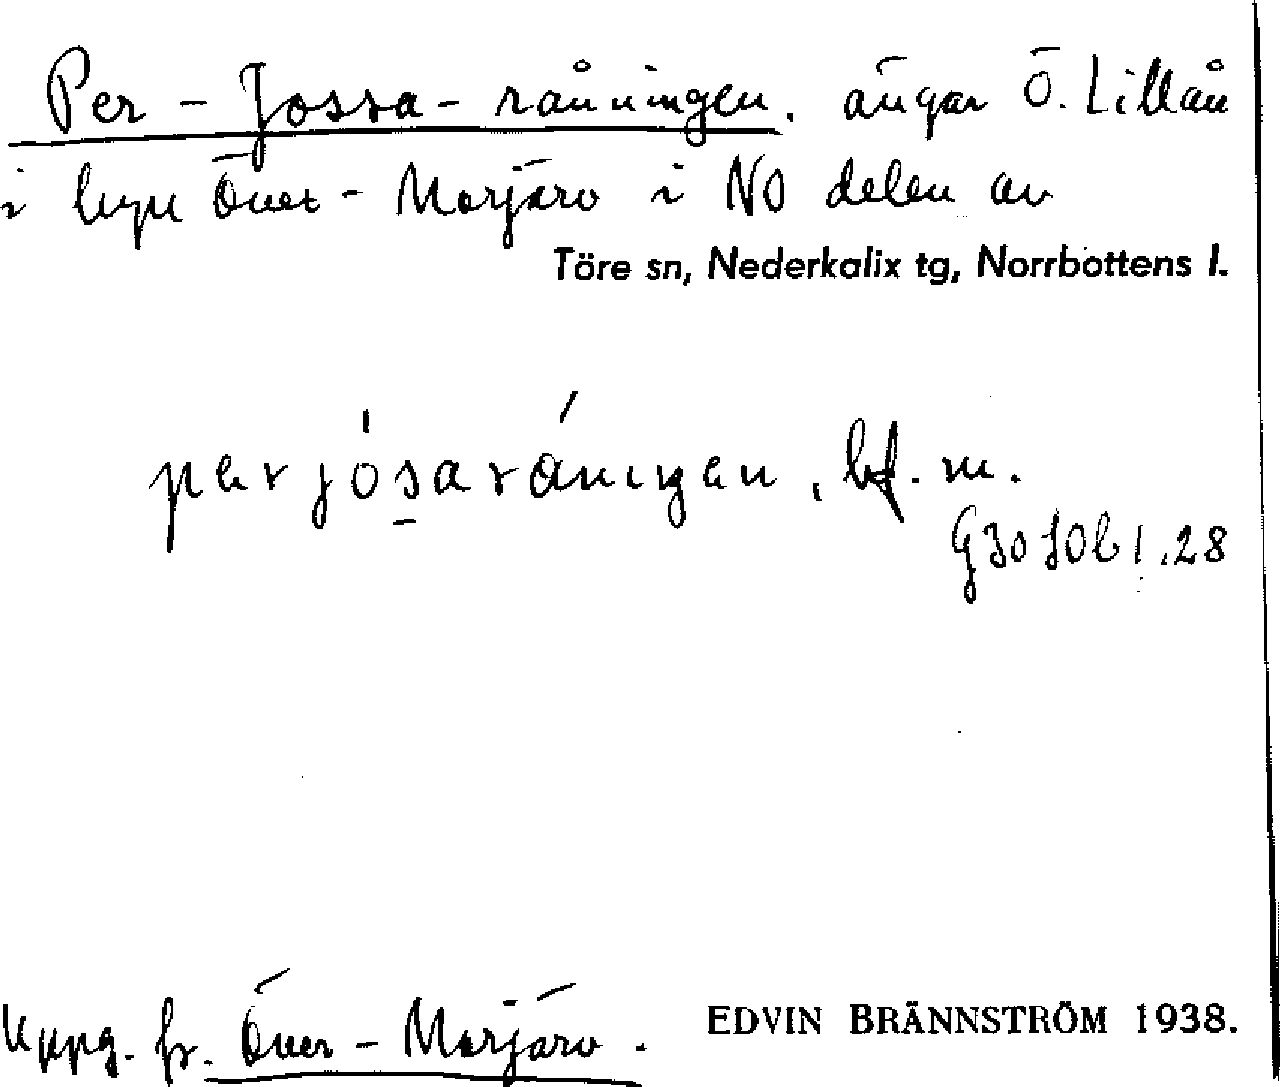 Per-Jossa-råningen. ängar Ö. Lillån
i byn Över-Morjärv i NO delen av
Töre sn, Nederkalix tg, Norrbottens l.
perjósaráningen, bf. m.
G3010b1.28
Uppg. fr. Över-Morjärv.
EDVIN BRÄNNSTRÖM 1938.